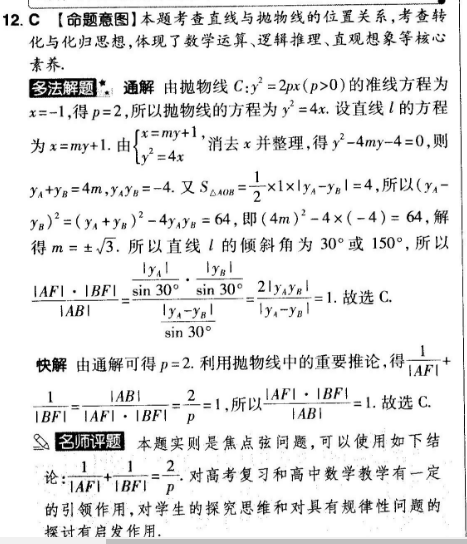 12. C 【命题意图】本题考查直线与抛物线的位置关系,考查转
化与化归思想,体现了数学运算、逻辑推理、直观想象等核心
素养.
多法解题 通解 由抛物线 C:y²=2px(p>0)的准线方程为
x=-1,得 p=2,所以抛物线的方程为 y²=4x. 设直线 l 的方程
为 x=my+1. 由{x=my+1, y²=4x 消去 x 并整理,得 y²-4my-4=0,则
y_A+y_B=4m,y_Ay_B=-4. 又 S_△AOB=1/2×1×|y_A-y_B|=4,所以(y_A-
y_B)²=(y_A+y_B)²-4y_Ay_B=64,即(4m)²-4×(-4)=64,解
得 m=±√3. 所以直线 l 的倾斜角为 30°或 150°,所以
|AF|·|BF|/|AB|=(|y_A|/sin 30°·|y_B|/sin 30°)/(|y_A-y_B|/sin 30°)=2|y_Ay_B|/|y_A-y_B|=1. 故选 C.
快解 由通解可得 p=2. 利用抛物线中的重要推论,得1/|AF|+
1/|BF|=|AB|/(|AF|·|BF|)=2/p=1,所以|AF|·|BF|/|AB|=1. 故选 C.
名师评题 本题实则是焦点弦问题,可以使用如下结
论:1/|AF|+1/|BF|=2/p. 对高考复习和高中数学教学有一定
的引领作用,对学生的探究思维和对具有规律性问题的
探讨有启发作用.